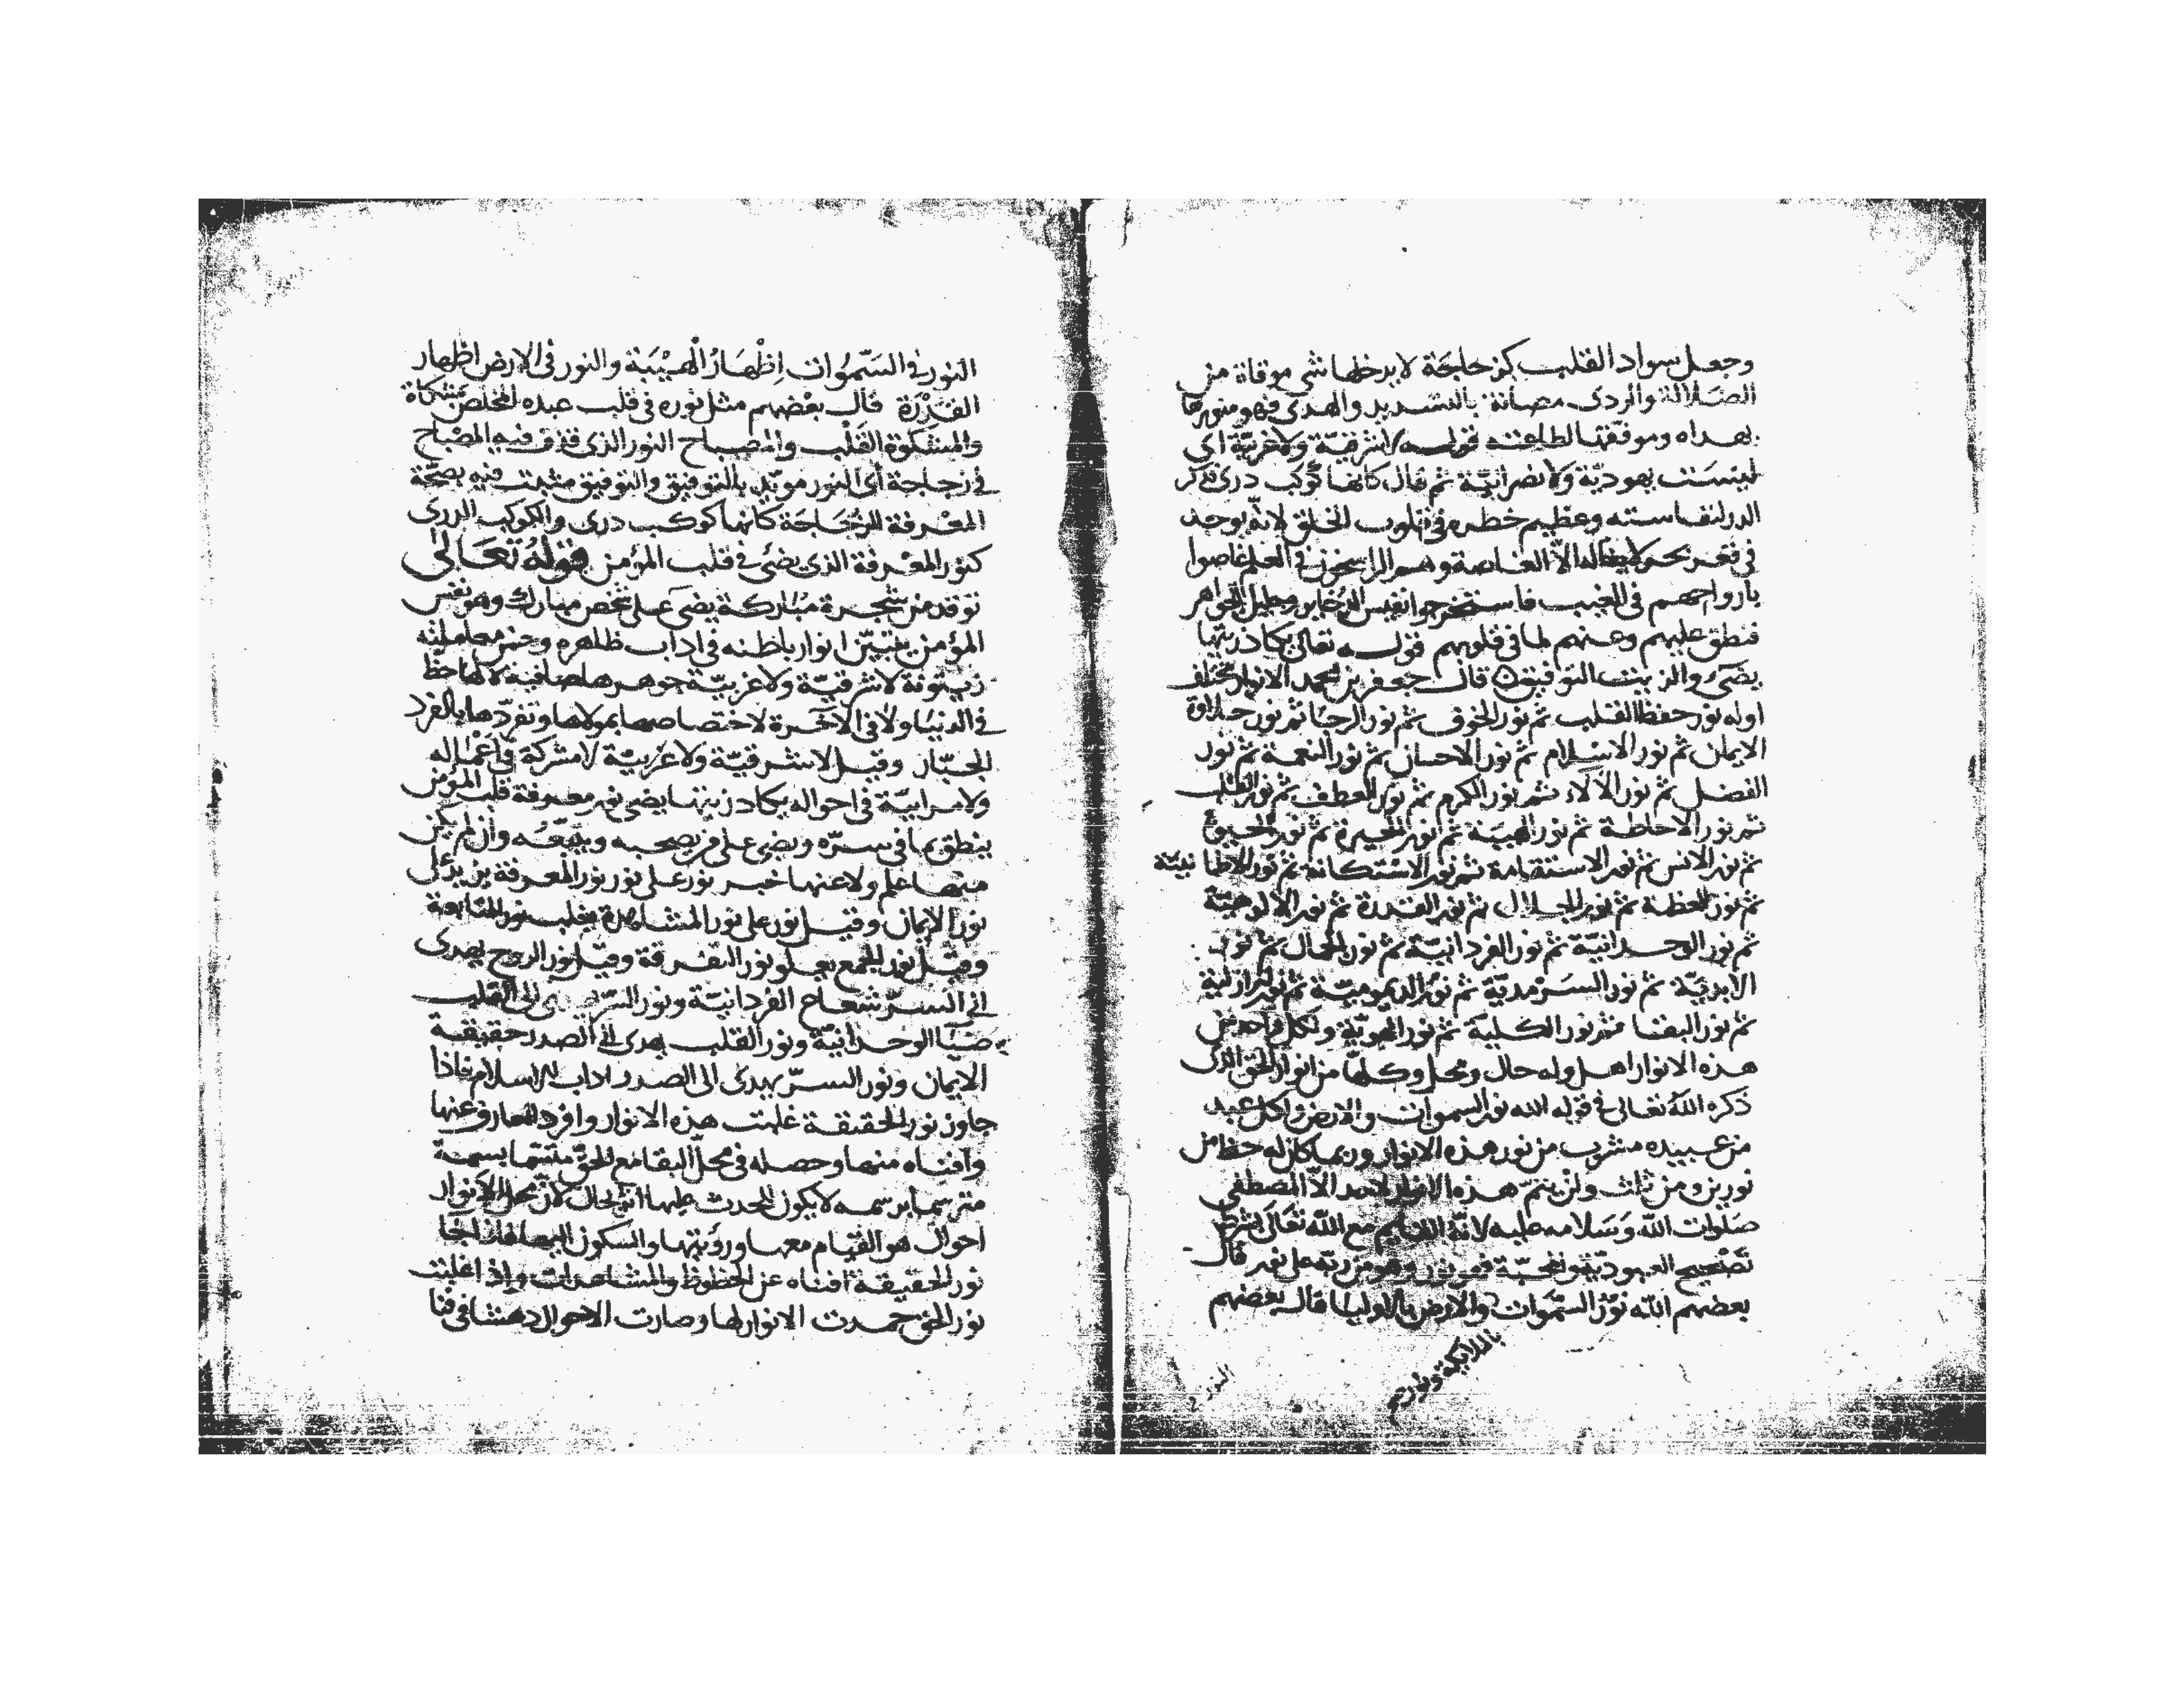 وجعل سواد القلب كزجاجة لا يدخلها شي موقاة من
الضلالة والردى مصانة بالتسديد والهدى فهو منورها
بهداه وموفقها لطاعته قوله لا شرقيّة ولا غربيّة اى
ليست يهوديّة ولا نصرانيّة ثم قال كانها كوكب درى ذكر
الدر لنفاسته وعظيم خطره فى قلوب الخلق لانه يوجد
فى قعر بحر لا يناله الّا الغاصة وهم الراسخون فى العلم غاصوا
بارواحهم فى الغيب فاستخرجوا نفيس الذخاير وجليل الجواهر
فنطق عليهم وعنهم لما فى قلوبهم قوله تعالى يكاد زيتها
يضىء والزيت التوفيق قال جعفر بن محمد الانوار تختلف
اوله نور حفظ القلب ثم نور الخوف ثم نور الرجا ثم نور حلاوة
الايمان ثم نور الاسلام ثم نور الاحسان ثم نور النعمة ثم نور
الفضل ثم نور الآلاء ثم نور الكرم ثم نور العطف ثم نور القلب
ثم نور الاحاطة ثم نور الهيبة ثم نور الحيرة ثم نور الحيوة
ثم نور الانس ثم نور الاستقامة ثم نور الاستكانة ثم نور الاطمانينة
ثم نور العظمة ثم نور الجلال ثم نور القدرة ثم نور الالوهيّة
ثم نور الوحدانيّة ثم نور الفردانيّة ثم نور الحال ثم نور
الابديّة ثم نور السرمديّة ثم نور الديموميّة ثم نور الازلية
ثم نور البقا ثم نور الكلية ثم نور الهويّة ولكل واحد من
هذه الانوار اهل وله حال ومحل وكلّها من انوار الحق الذى
ذكره الله تعالى فى قوله الله نور السموات والارض ولكل عبد
من عبيده مشرب من نور هذه الانوار وربما كان له حظا من
نورين ومن ثلث ولن يتمّ هذه الانوار لاحد الّا المصطفى
صلوات الله وسلامه عليه لانّه القايم مع الله تعالى بشرط
تصحيح العبوديّة والمحبّة فهو نور وهو من ربّه على نور قال
بعضهم الله نوّر السموات والارض بالاوليا قال بعضهم
بالملايكة ونورهم
النور فى
النور فى السّموات اظهار الهيبة والنور فى الارض اظهار
القدرة قال بعضهم مثل نوره فى قلب عبده المخلص كمشكاة
والمشكوة القلب والمصباح النور الذى قذف فيه المصباح
فى زجاجة اى النور مويّد بالتوفيق والتوفيق مثبت فيه بصحّة
المعرفة الزجاجة كانها كوكب درى والكوكب الدرى
كنور المعرفة الذى يضىء فى قلب المؤمن قوله تعالى
توقد من شجرة مباركة يضىء على شخص مبارك وهو نفس
المؤمن يتبيّن انوار باطنه فى اداب ظاهره وحسن معاملته
زيتونة لا شرقيّة ولا غربيّة جوهرها صافية لا لها حظ
فى الدنيا ولا فى الاخرة لاختصاصها بمولاها وتفرّدها بالفرد
الجبّار وقيل لا شرقيّة ولا غربيّة لا مشركة فى اعماله
ولا مرابيّة فى احواله يكاد زيتها يضى نور معرفة قلب المؤمن
ينطق بما فى سرّه ويضى على من يصحبه ويتبعه وان لم يكن
منها علم ولا عنها خبر نور على نور نور المعرفة يزيد على
نور الايمان وقيل نور على نور المشاهدة يغلب نور المتابعة
وقيل نور الجمع يعلو نور التفرقة وقيل نور الروح يهدى
الى السرّ شعاع الفردانيّة ونور السرّ يهدى الى القلب
ضيا الوحدانيّة ونور القلب يهدى الى الصدر حقيقة
الايمان ونور السرّ يهدى الى الصدر اداب الاسلام فاذا
جاوز نور الحقيقة غلبت هذه الانوار وافرد المعارف عنها
وافناه منها وحصله فى محلّ البقا مع الحقّ متسّما بسمة
مترسّما برسمه لا يكون للحدث عليها اثر بحال لانّ محل الانوار
احوال هو القيام معها ورؤيتها والسكون اليها فاذا جا
نور الحقيقة افناه عن الحظوظ والمشاهدات واذا غلبت
نور الحق خمدت الانوار لها وصارت الاحوال دهشا فى فنا